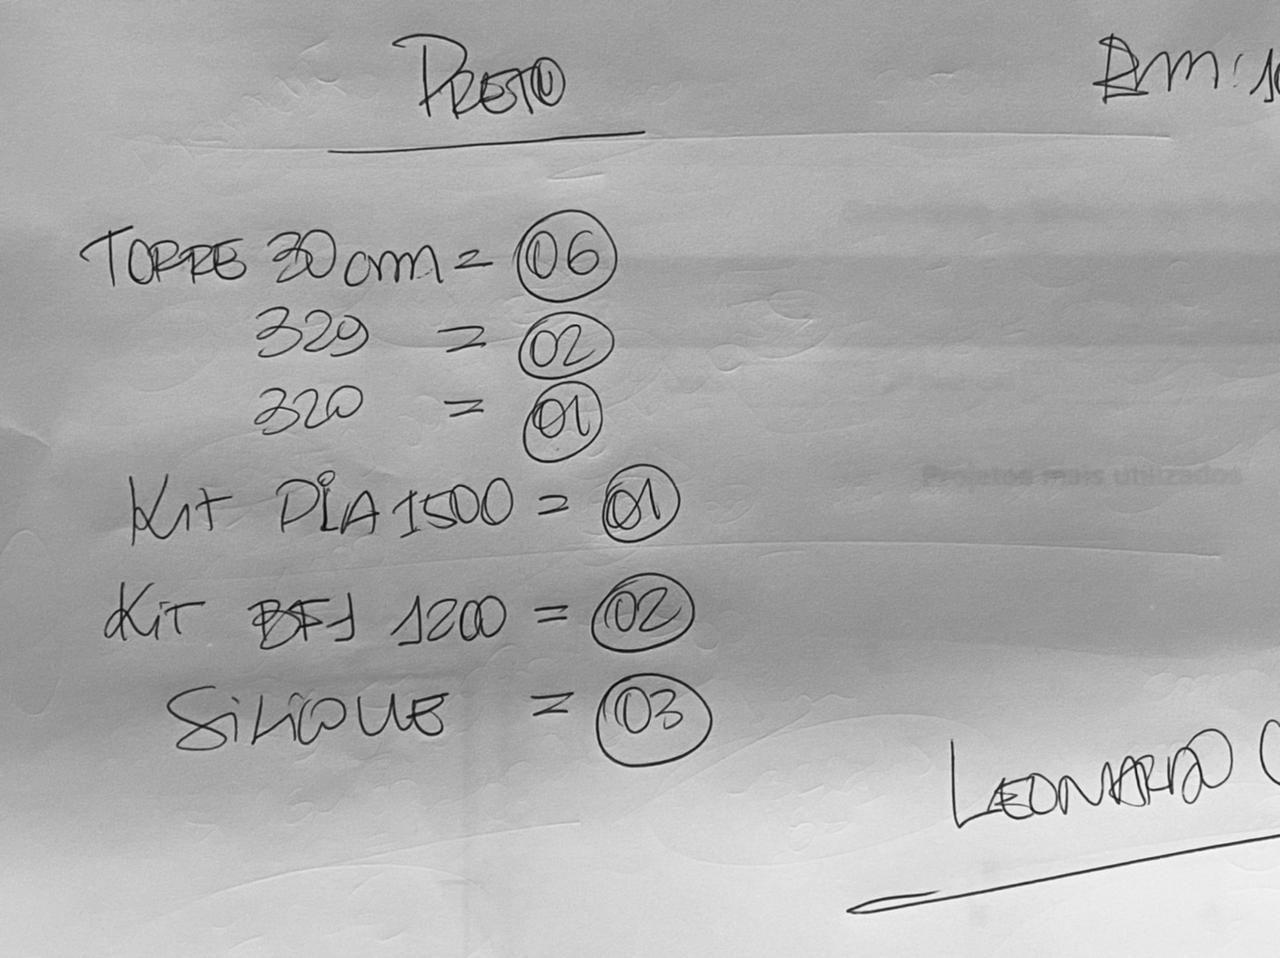 PRETO
RM:10
TORRE 30cm = 06
329 = 02
320 = 01
Kit DIA 1500 = 01
Kit BF1 1200 = 02
SILICOUE = 03
Projetos mais utilizados
LEONARDO